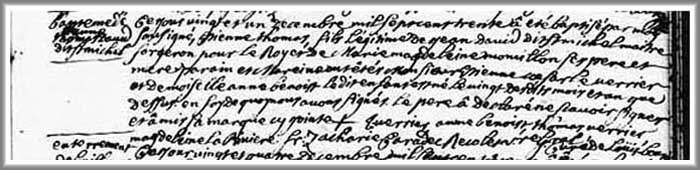 Baptême de
Etienne
thomas David
dit st michel
Ce jour vingt et un Decembre mil sept cent trente a été baptisé par
soussigné, Etienne thomas, fils légitime de jean david dit st michel maitre
forgeron pour le Roy et de Marie magdeleine monmellian ses pere et
mere Parain et Mareine ont étés Monsieur Etienne verrier
et demoiselle anne benoist ledit enfant est né le vingt desdits mois et an que
dessus, en foy de quoy nous avons signés. Le pere a declaré ne scavoir signer
et a mis sa marque cy jointe + Verrier, anne benoist, thomas verrier
magdeleine la fr. Zacharie Caradec Recolet
enterrement
Ce jour vingt et quatre decembre mil sept cent